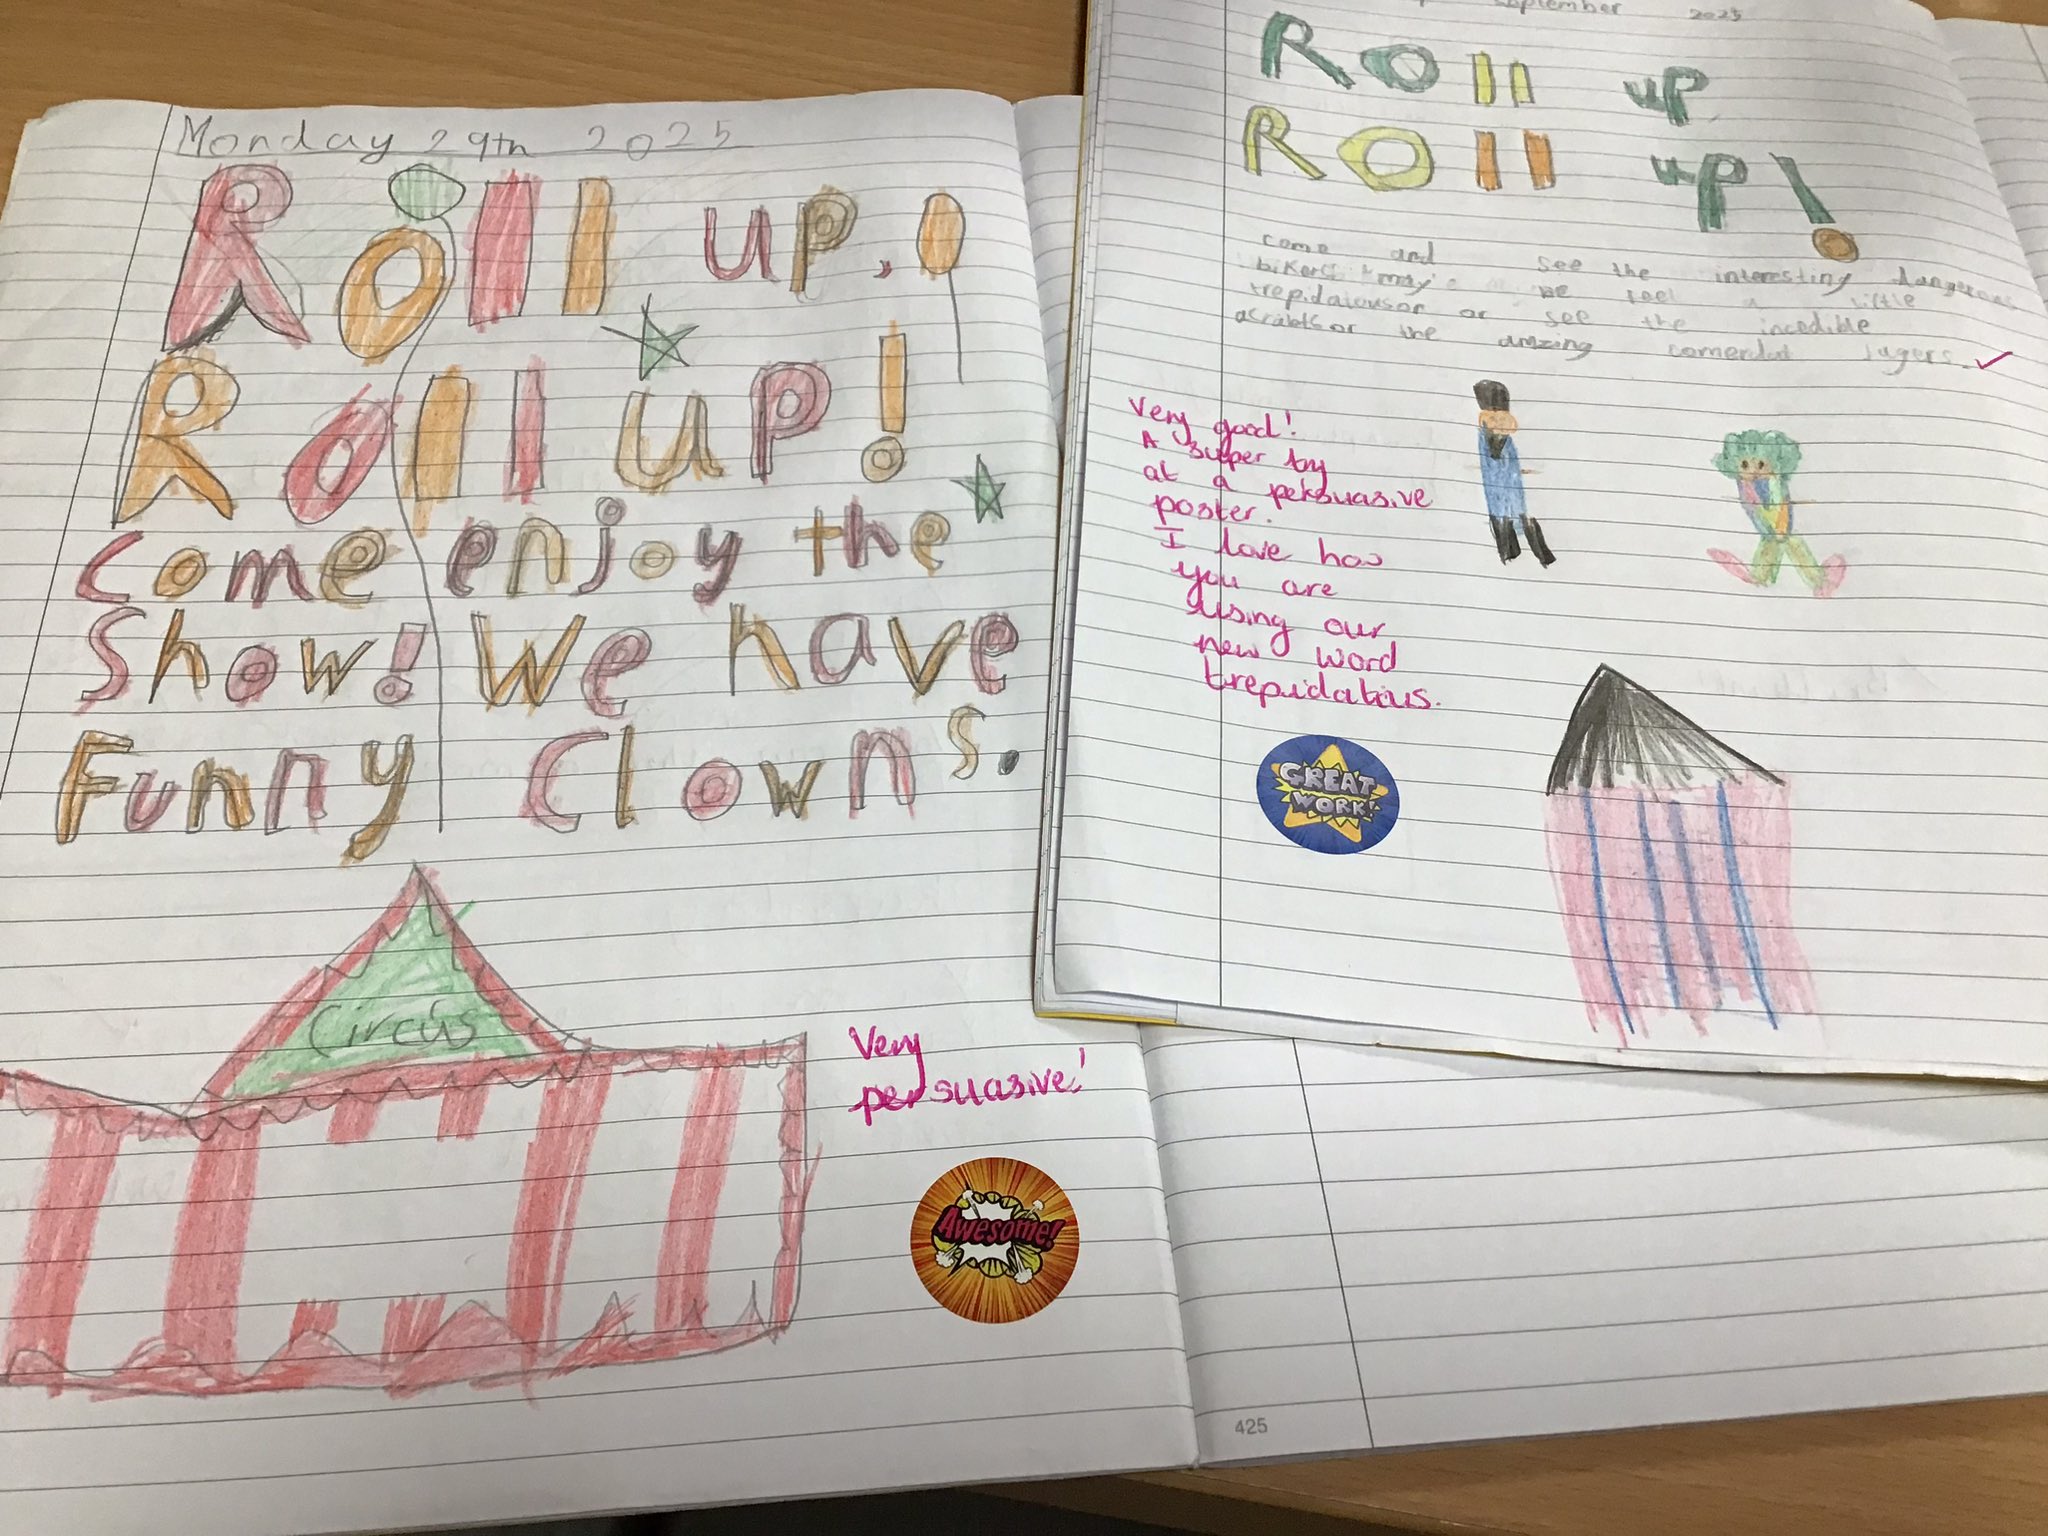 Monday 29th 2025
Roll up,
Roll up!
Come enjoy the
Show! We have
Funny Clowns.
Circus
Very
persuasive!
Awesome!
September 2025
Roll up
Roll up!
come and see the interesting dangerous
bikers "may" we feel a little
trepidatousor or see the incedible
acrabts or the amzing comerdat jugers
Very good!
A super try
at a persuasive
poster.
I love how
you are
using our
new word
trepidatius.
GREAT
WORK!
425